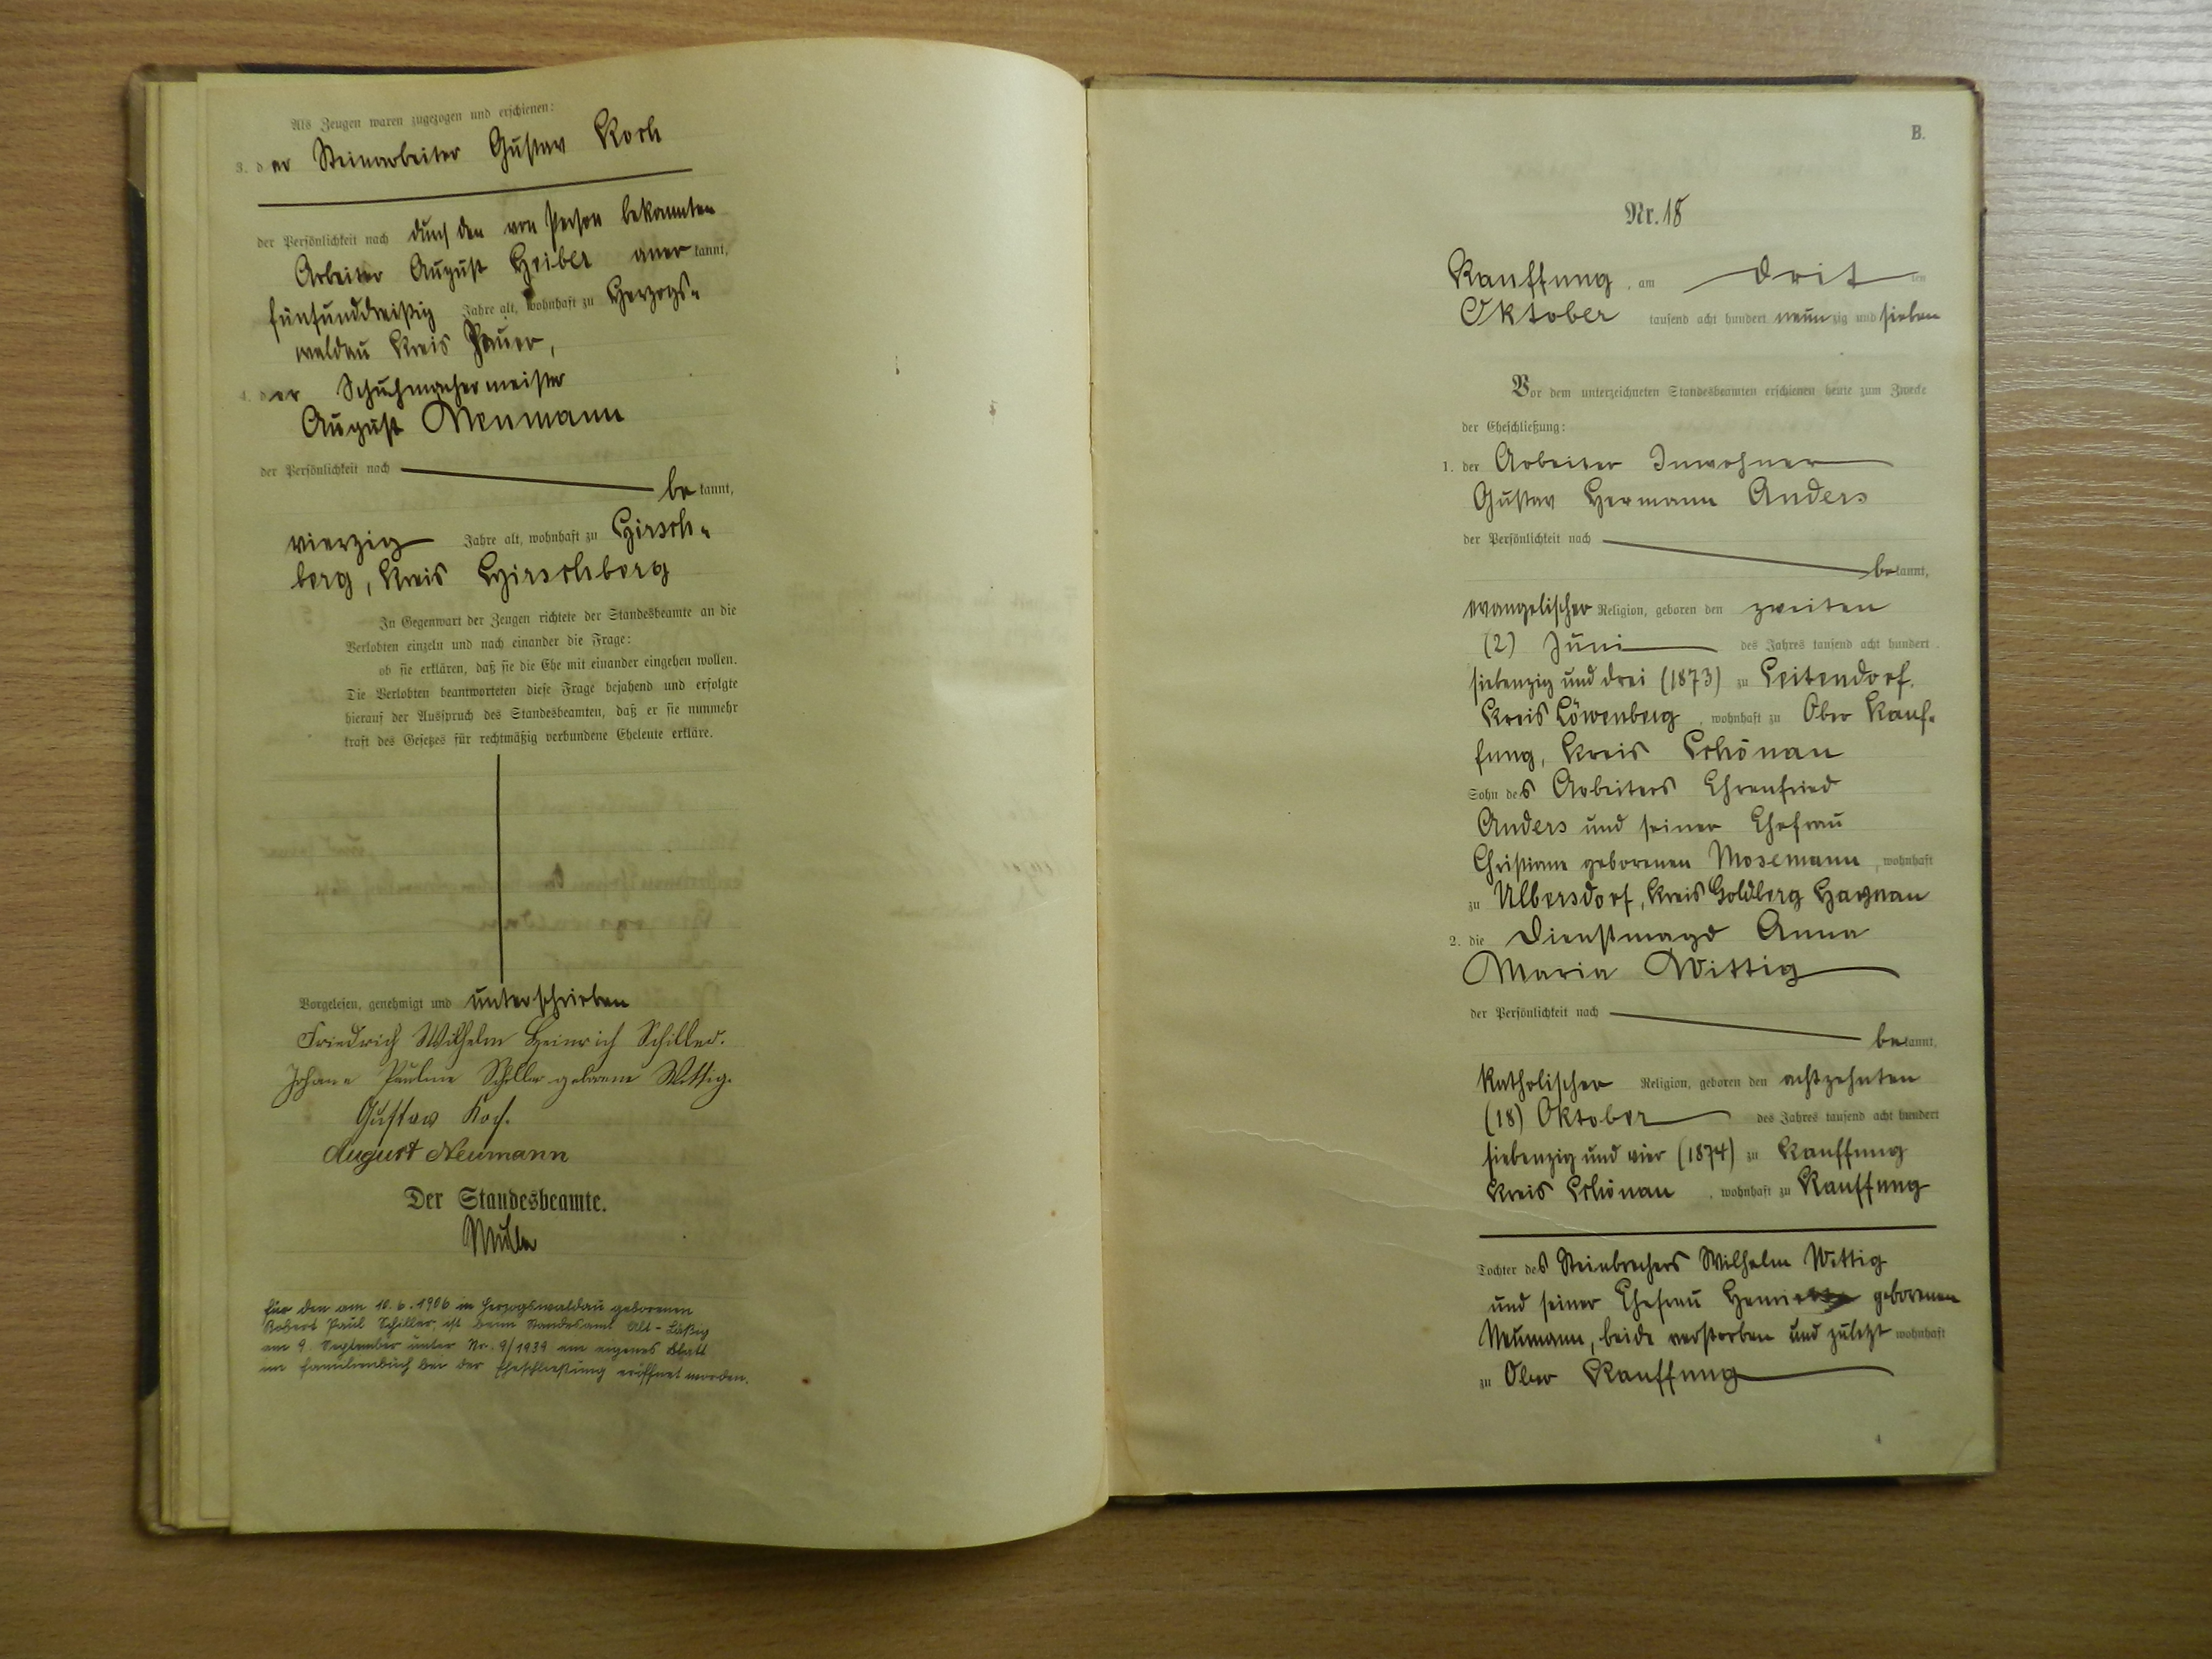 Als Zeugen waren zugezogen und erschienen:
3. der Steinarbeiter Gustav Koch
der Persönlichkeit nach durch den von Person bekannten
Arbeiter August anerkannt,
fünfunddreißig Jahre alt, wohnhaft zu Herzogs-
waldau Kreis Jauer,
4. der Schuhmachermeister
August Neumann
der Persönlichkeit nach
bekannt,
vierzig Jahre alt, wohnhaft zu Hirsch-
berg, Kreis Hirschberg
In Gegenwart der Zeugen richtete der Standesbeamte an die
Verlobten einzeln und nach einander die Frage:
ob sie erklären, daß sie die Ehe mit einander eingehen wollen.
Die Verlobten beantworteten diese Frage bejahend und erfolgte
hierauf der Ausspruch des Standesbeamten, daß er sie nunmehr
kraft des Gesetzes für rechtmäßig verbundene Eheleute erkläre.
Vorgelesen, genehmigt und unterschrieben
Friedrich Wilhelm Heinrich Schiller.
Johane Pauline Schiller geborene Wittig.
Gustav Koch.
August Neumann
Der Standesbeamte.
für den am 10.6.1906 in Herzogswaldau geborenen
Robert Paul Schiller ist beim Standesamt Alt-Läßig
am 9. September unter Nr. 9/1939 ein eigenes Blatt
im Familienbuch bei der Eheschließung eröffnet worden.
B.
Nr. 18
Kauffung, am dritten
Oktober tausend acht hundert neunzig und sieben
Vor dem unterzeichneten Standesbeamten erschienen heute zum Zwecke
der Eheschließung:
1. der Arbeiter Inwohner
Gustav Hermann Anders
der Persönlichkeit nach
bekannt,
evangelischer Religion, geboren den zweiten
(2) Juni des Jahres tausend acht hundert
siebenzig und drei (1873) zu
Kreis Löwenberg, wohnhaft zu Ober Kauf-
fung, Kreis Schönau
Sohn des Arbeiters Ehrenfried
Anders und seiner Ehefrau
Christiane geborenen Mosemann, wohnhaft
zu Ulbersdorf, Kreis Goldberg Haynau
2. die Dienstmagd Anna
Maria Wittig
der Persönlichkeit nach
bekannt,
katholischer Religion, geboren den achtzehnten
(18) Oktober des Jahres tausend acht hundert
siebenzig und vier (1874) zu Kauffung
Kreis Schönau, wohnhaft zu Kauffung
Tochter des Steinbrechers Wilhelm Wittig
und seiner Ehefrau geborenen
Neumann, beide verstorben und zuletzt wohnhaft
zu Ober Kauffung
4